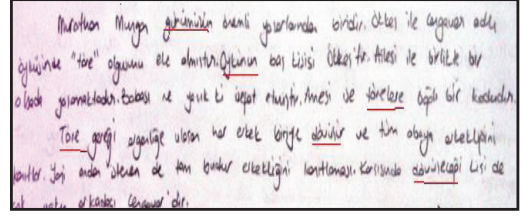 Murathan Mungan günümüzün önemli yazarlarından biridir. Ökkeş ile Cengaver adlı
öyküsünde "töre" olgusunu ele almıştır. Öykünün baş kişisi Ökkeş'tir. Ailesi ile birlikte bir
obada yaşamaktadır. Babası ne yazık ki vefat etmiştir. Annesi de törelere bağlı bir kadındır.
Töre gereği erginliğe ulaşan her erkek biriyle dövüşür ve tüm obaya erkekliğini
kanıtlar. Yani ondan istenen de tam budur erkekliğini kanıtlaması. Karşısında dövüşeceği kişi de
yakın arkadaşı Cengaver'dir.